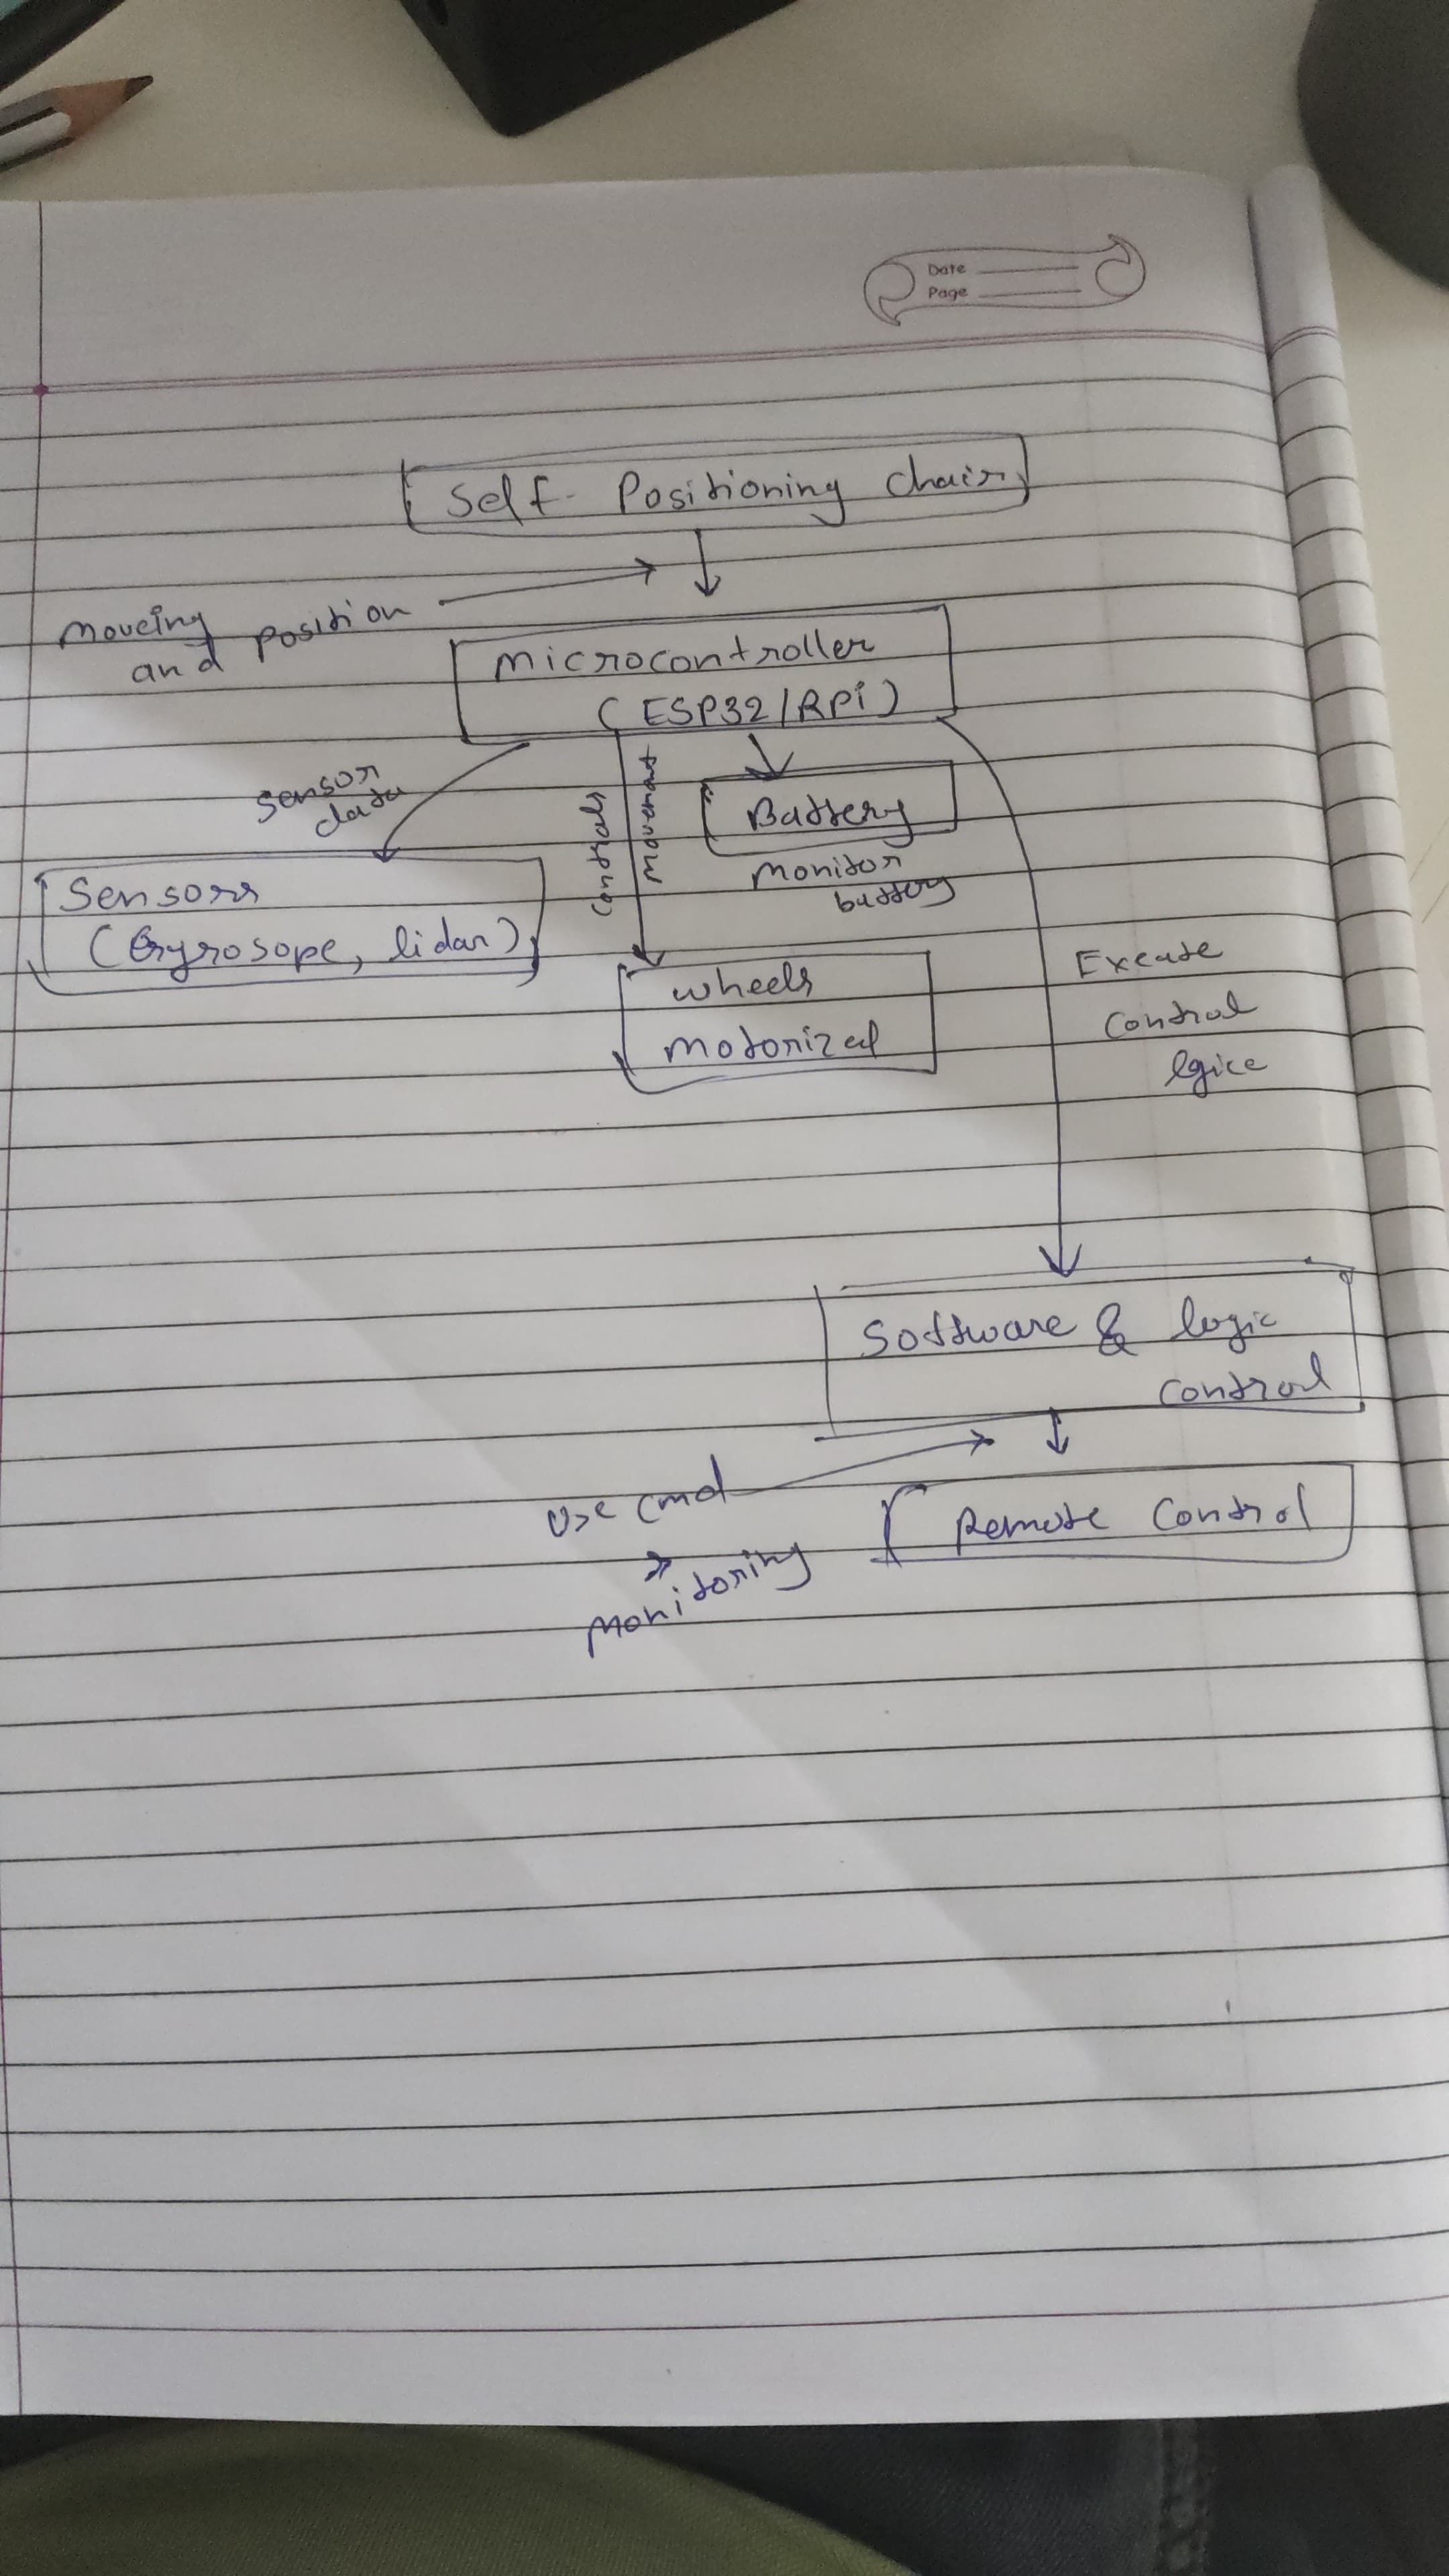 Date
Page
Self-Positioning Chair
Moveing
and position
Microcontroller
(ESP32/RPi)
Sensor
data
Controls
Movement
Battery
Monitor
battery
Sensors
(Gyrosope, lidar)
Wheels
Motorized
Excute
Control
lgice
Software & logic
Control
Use cmd
Monitoring
Remote Control